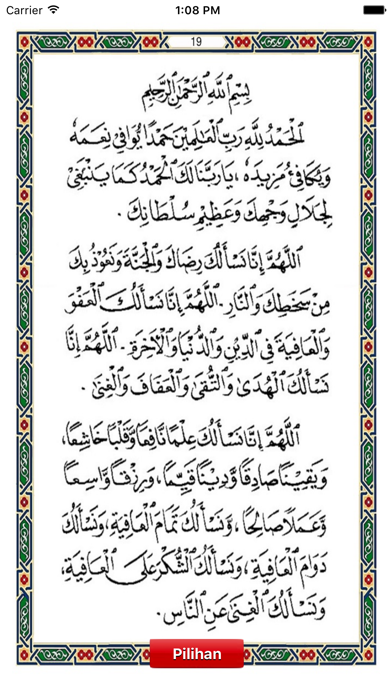 Carrier 1:08 PM
19
بِسْمِ ٱللَّهِ ٱلرَّحْمَٰنِ ٱلرَّحِيمِ
اَلْحَمْدُ لِلَّهِ رَبِّ ٱلْعَالَمِيْنَ حَمْدًا يُوَافِيْ نِعَمَهُ
وَيُكَافِئُ مَزِيْدَهُ ، يَا رَبَّنَا لَكَ ٱلْحَمْدُ كَمَا يَنْبَغِيْ
لِجَلَالِ وَجْهِكَ وَعَظِيْمِ سُلْطَانِكَ .
اَللَّهُمَّ إِنَّا نَسْأَلُكَ رِضَاكَ وَٱلْجَنَّةَ وَنَعُوْذُ بِكَ
مِنْ سَخَطِكَ وَٱلنَّارِ . اَللَّهُمَّ إِنَّا نَسْأَلُكَ ٱلْعَفْوَ
وَٱلْعَافِيَةَ فِي ٱلدِّيْنِ وَٱلدُّنْيَا وَٱلْآخِرَةِ . اَللَّهُمَّ إِنَّا
نَسْأَلُكَ ٱلْهُدَىٰ وَٱلتُّقَىٰ وَٱلْعَفَافَ وَٱلْغِنَىٰ .
اَللَّهُمَّ إِنَّا نَسْأَلُكَ عِلْمًا نَافِعًا وَّقَلْبًا خَاشِعًا ،
وَيَقِيْنًا صَادِقًا وَّدِيْنًا قَيِّمًا ، وَرِزْقًا وَّاسِعًا
وَّعَمَلًا صَالِحًا ، وَّنَسْأَلُكَ تَمَامَ ٱلْعَافِيَةِ ، وَنَسْأَلُكَ
دَوَامَ ٱلْعَافِيَةِ ، وَنَسْأَلُكَ ٱلشُّكْرَ عَلَى ٱلْعَافِيَةِ ،
وَنَسْأَلُكَ ٱلْغِنَىٰ عَنِ ٱلنَّاسِ .
Pilihan